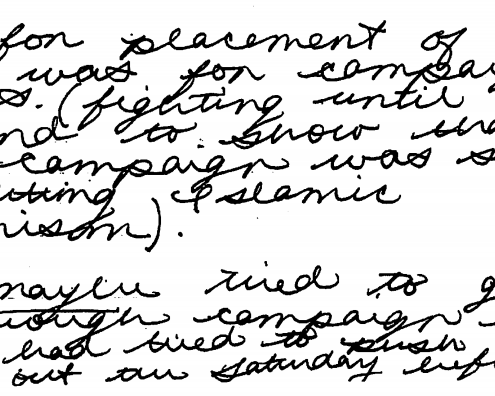 for placement of
was for campai
s. (fighting until
nd to show tha
campaign was s
utting Islamic
rison).
maybe tried to g
rough campaign
had tried to push
out the Saturday befo